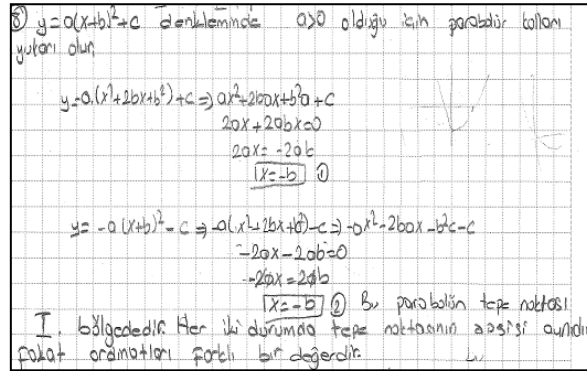 ⑧ y=a(x+b)²+c denkleminde a>0 olduğu için parabolün kolları
yukarı olur.
y=a.(x²+2bx+b²)+c⇒ax²+2bax+b²a+c
2ax+2abx=0
2ax=-2ab
x=-b ①
y=-a(x+b)²-c⇒-a(x²+2bx+b²)-c⇒-ax²-2bax-b²c-c
-2ax-2ab=0
-2ax=2ab
x=-b ② Bu parabolün tepe noktası
I. bölgededir. Her iki durumda tepe noktasının apsisi aynıdır
fakat ordinatları farklı bir değerdir.